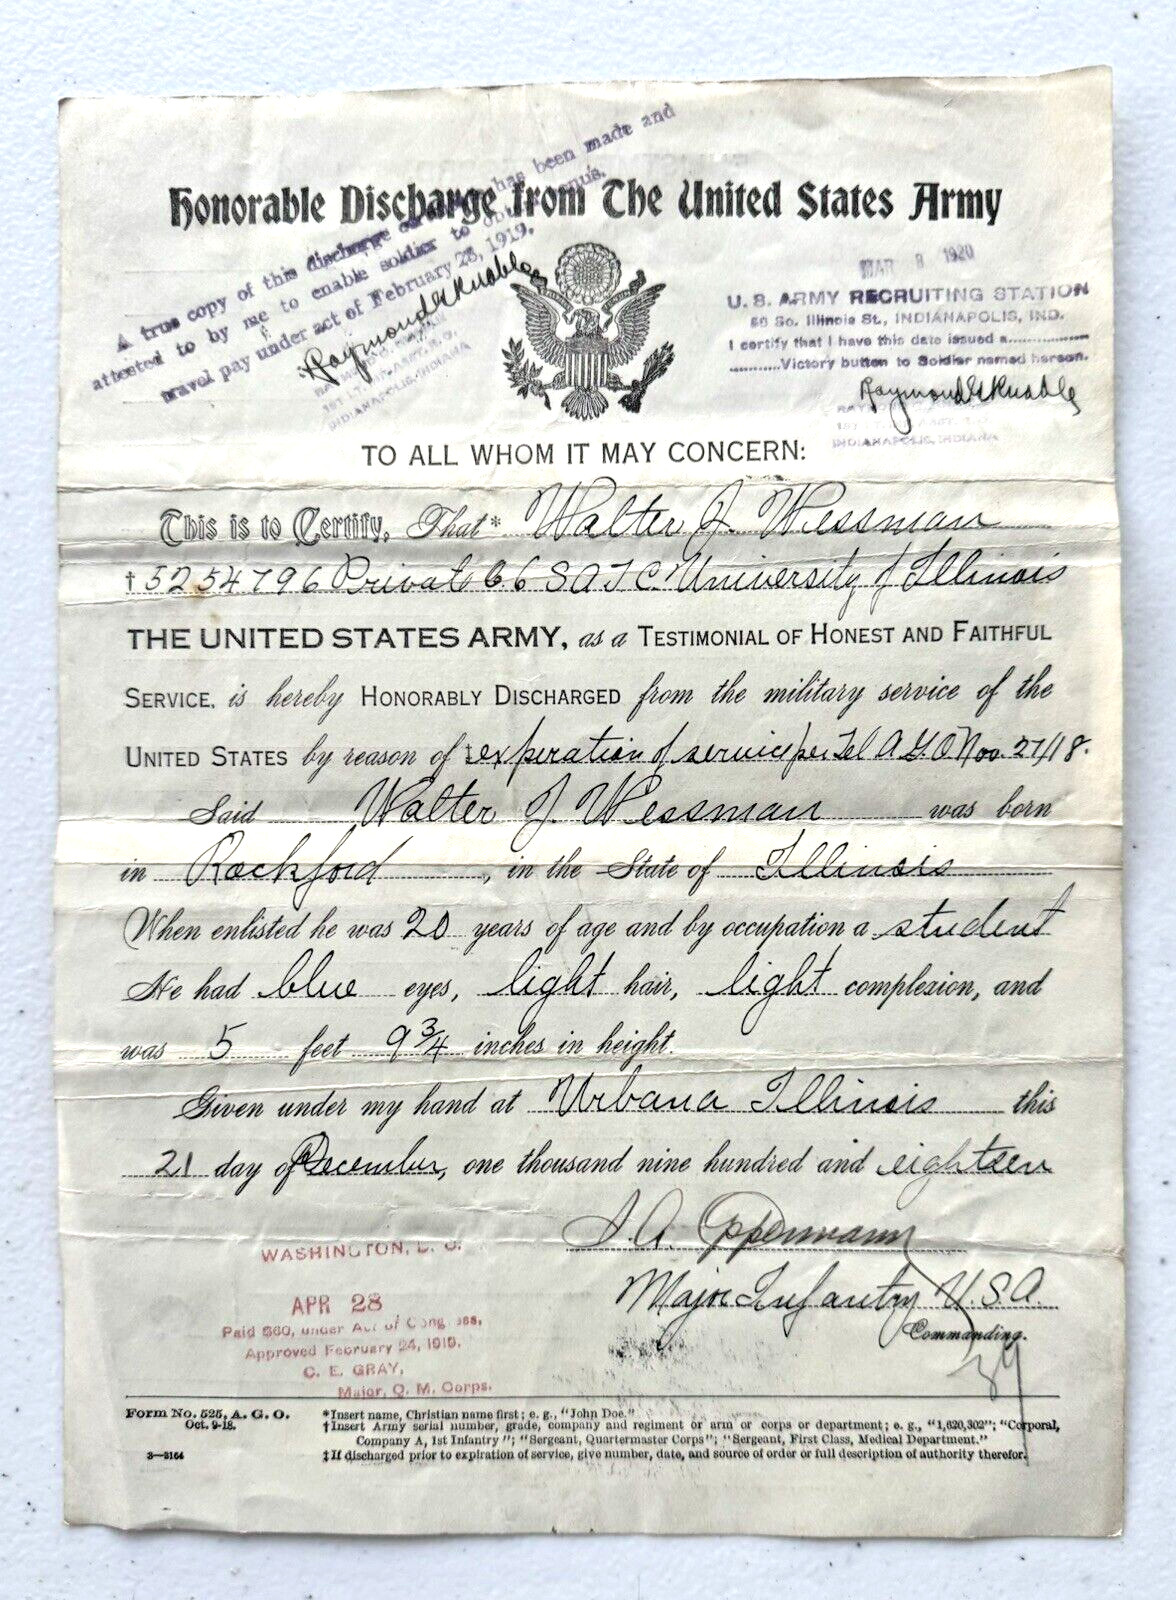 A true copy of this discharge has been made and
attested to by me to enable soldier to
travel pay under act of February 28, 1919.
Honorable Discharge from The United States Army
Raymond G Knable
INDIANAPOLIS, INDIANA
MAR 8 1920
U. S. ARMY RECRUITING STATION
50 So. Illinois St., INDIANAPOLIS, IND.
I certify that I have this date issued a
Victory button to Soldier named hereon.
Raymond G Knable
INDIANAPOLIS, INDIANA
TO ALL WHOM IT MAY CONCERN:
This is to Certify, That* Walter J. Wessman
†5254796 Private Co 6 S A T C. University of Illinois
THE UNITED STATES ARMY, as a TESTIMONIAL OF HONEST AND FAITHFUL
SERVICE, is hereby HONORABLY DISCHARGED from the military service of the
UNITED STATES by reason of ‡experation of service per Tel A.G.O. Nov. 27/18.
Said Walter J. Wessman was born
in Rockford, in the State of Illinois
When enlisted he was 20 years of age and by occupation a student
He had blue eyes, light hair, light complexion, and
was 5 feet 9 3/4 inches in height.
Given under my hand at Urbana Illinois this
21 day of December, one thousand nine hundred and eighteen
Oppermann
Major Infantry U.S.A.
Commanding.
WASHINGTON, D. C.
APR 28
Paid $60, under Act of Congress,
Approved February 24, 1919.
C. E. GRAY,
Major, Q. M. Corps.
Form No. 525, A. G. O.
Oct. 9-18.
3—3164
*Insert name, Christian name first; e. g., "John Doe."
†Insert Army serial number, grade, company and regiment or arm or corps or department; e. g., "1,620,302"; "Corporal,
Company A, 1st Infantry"; "Sergeant, Quartermaster Corps"; "Sergeant, First Class, Medical Department."
‡If discharged prior to expiration of service, give number, date, and source of order or full description of authority therefor.